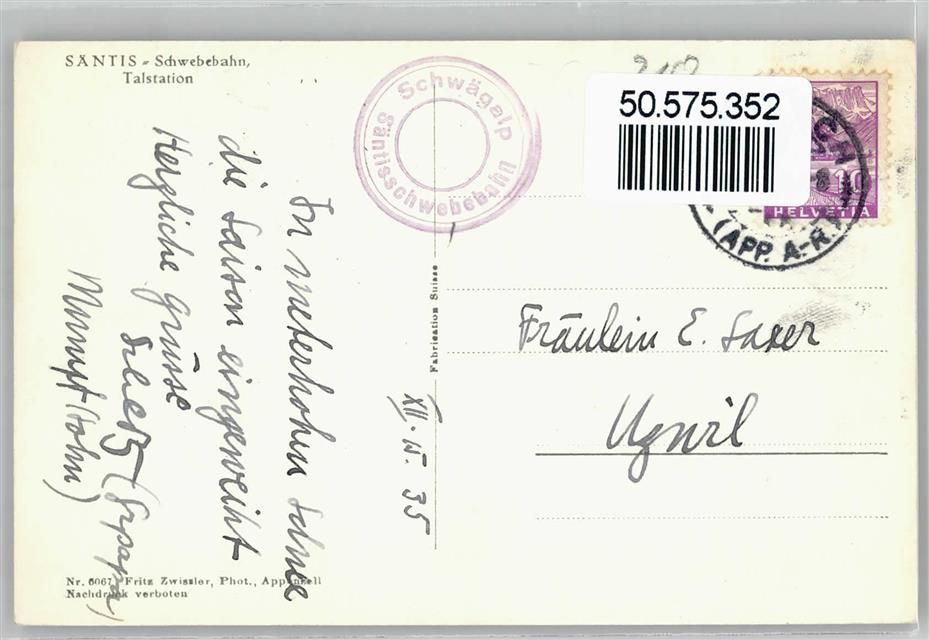 SÄNTIS - Schwebebahn,
Talstation
Schwägalp
Säntisschwebebahn
50.575.352
HELVETIA
10
(APP. A.-R.)
In meterhohen Schnee
die Saison eingeweiht
Herzliche Grüsse
(Papa)
(Sohn)
XII. 15. 35
Fabrication Suisse
Fräulein E. Saxer
Uzwil
Nr. 6067 Fritz Zwissler, Phot., Appenzell
Nachdruck verboten